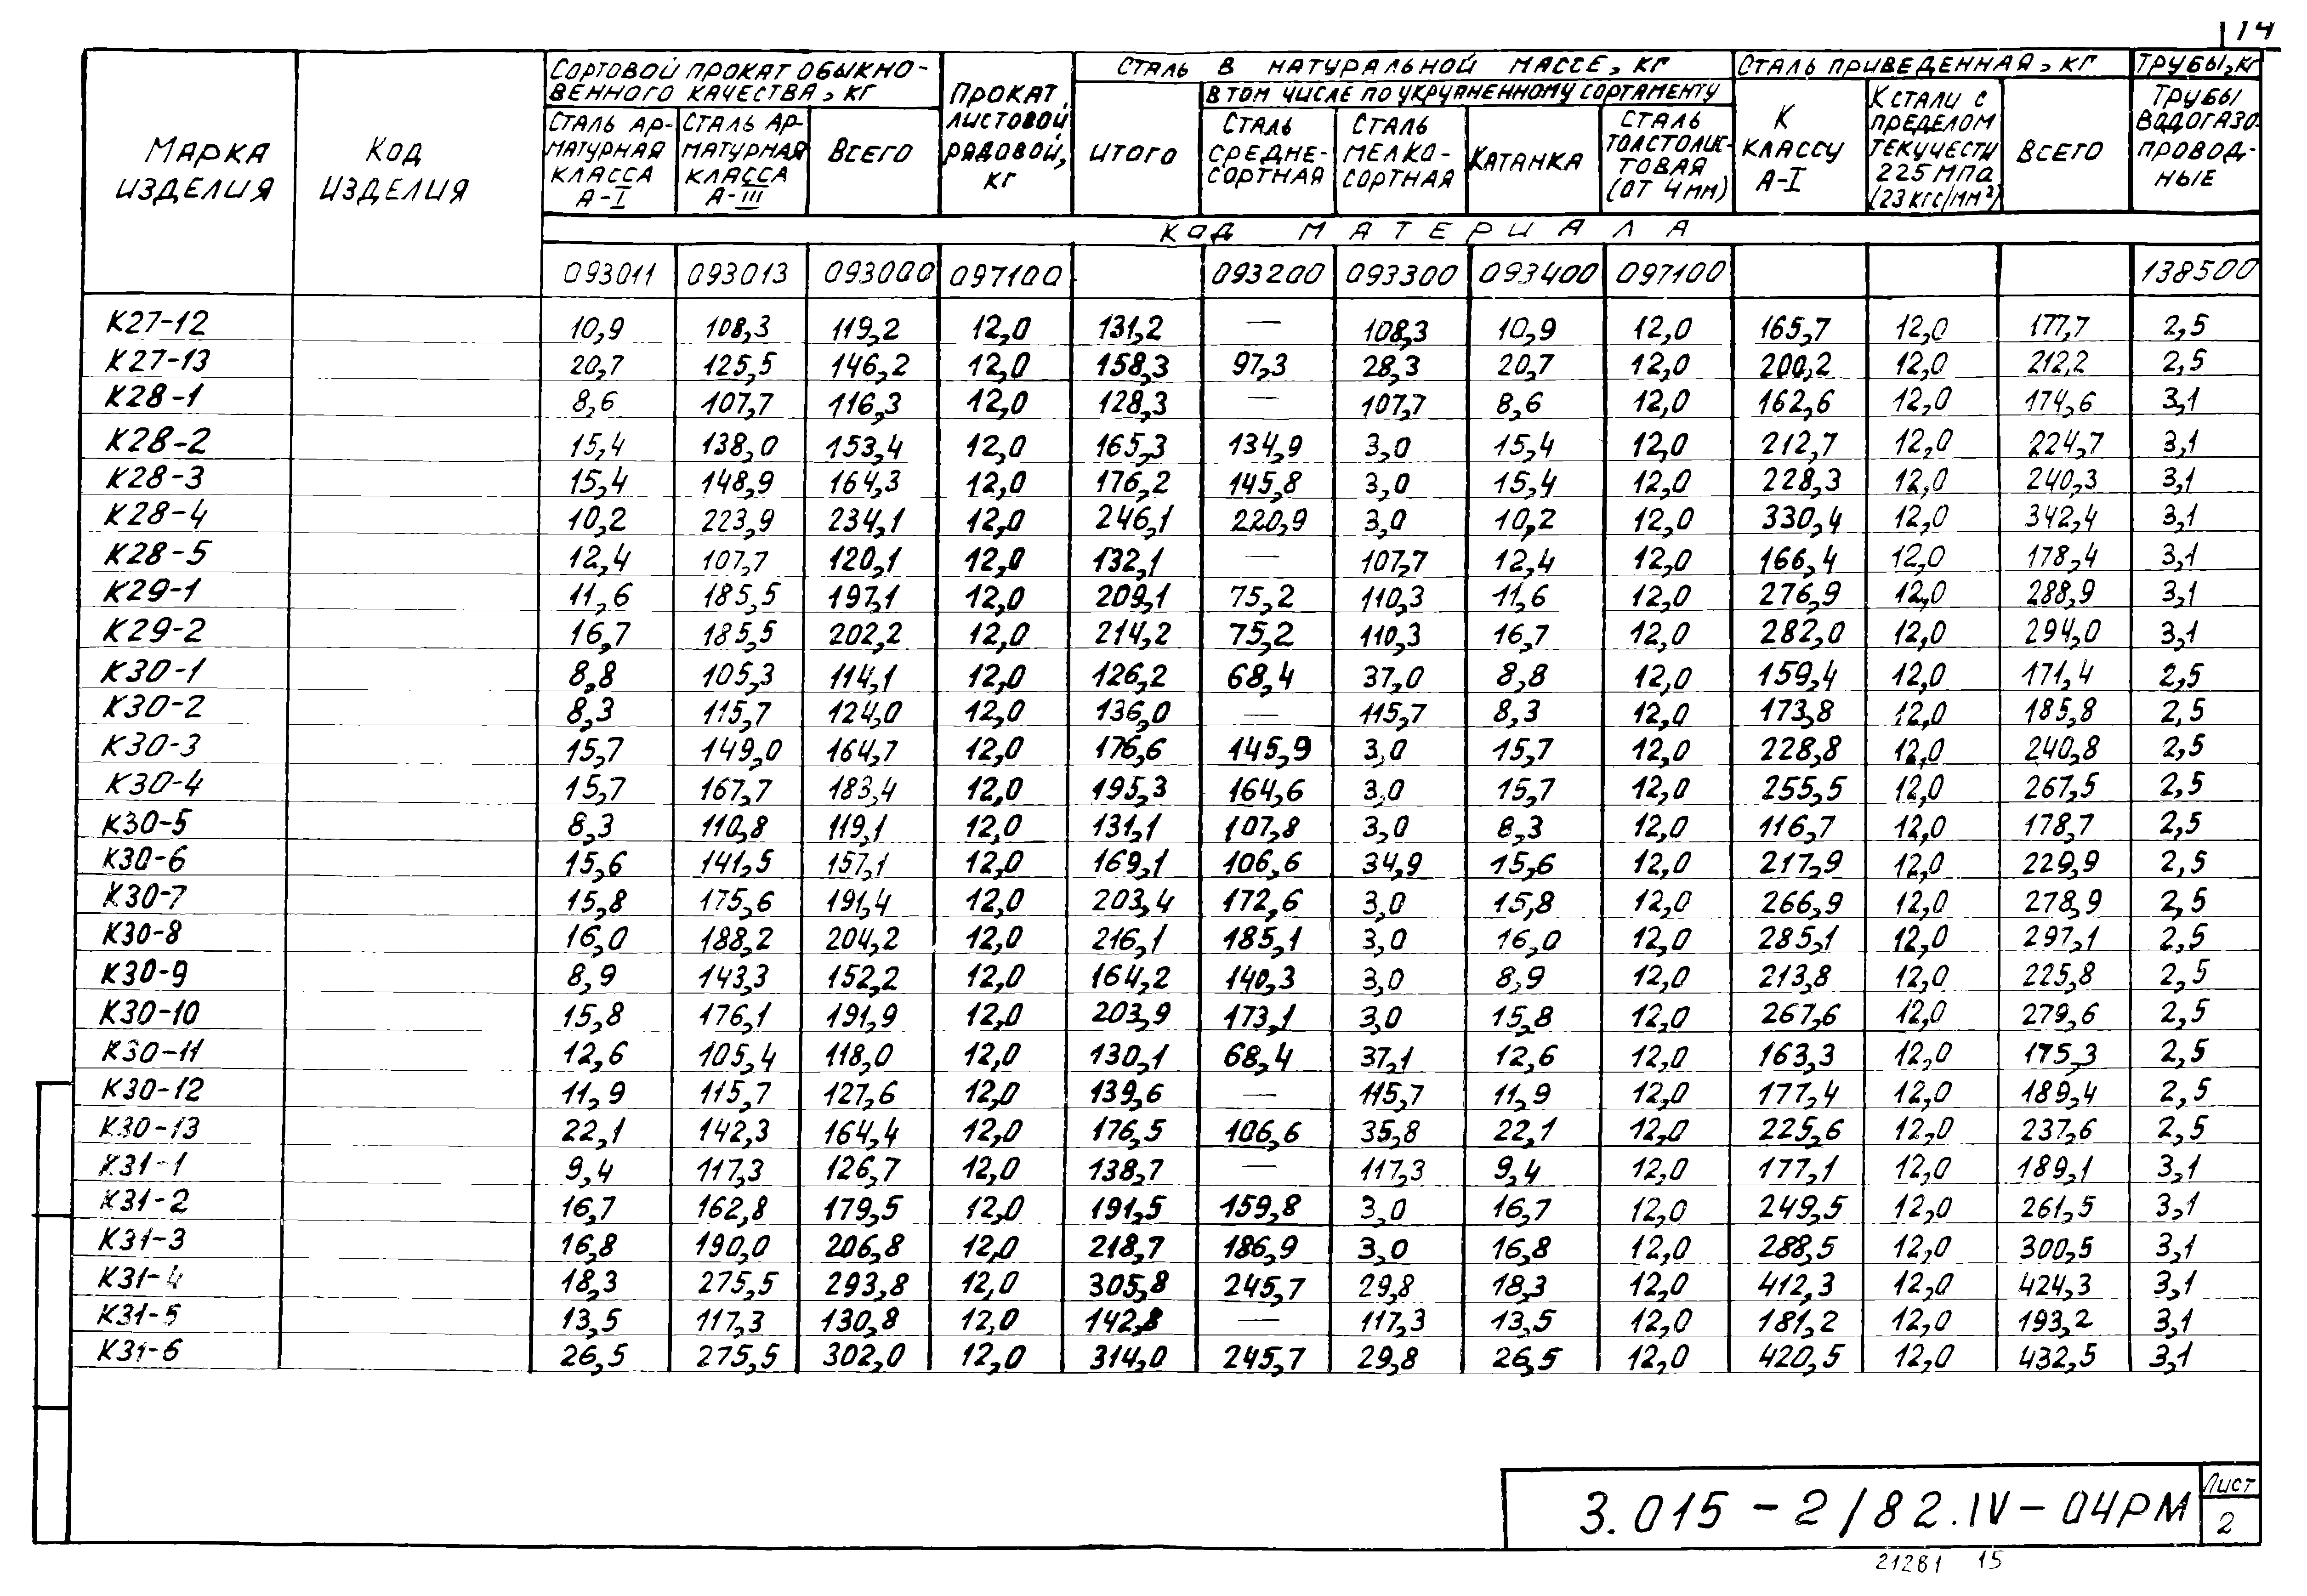 14
Марка изделия | Код изделия | Сортовой прокат обыкновенного качества, кг | Прокат листовой рядовой, кг | Сталь в натуральной массе, кг | Сталь приведенная, кг | Трубы, кг
Сталь арматурная класса А-I | Сталь арматурная класса А-III | Всего | Итого | В том числе по укрупненному сортаменту | К классу А-I | К стали с пределом текучести 225 МПа (23 кгс/мм²) | Всего | Трубы водогазопроводные
Сталь среднесортная | Сталь мелкосортная | Катанка | Сталь толстолистовая (от 4 мм)
Код материала
093011 093013 093000 097100 093200 093300 093400 097100 138500
К27-12 10,9 108,3 119,2 12,0 131,2 — 108,3 10,9 12,0 165,7 12,0 177,7 2,5
К27-13 20,7 125,5 146,2 12,0 158,3 97,3 28,3 20,7 12,0 200,2 12,0 212,2 2,5
К28-1 8,6 107,7 116,3 12,0 128,3 — 107,7 8,6 12,0 162,6 12,0 174,6 3,1
К28-2 15,4 138,0 153,4 12,0 165,3 134,9 3,0 15,4 12,0 212,7 12,0 224,7 3,1
К28-3 15,4 148,9 164,3 12,0 176,2 145,8 3,0 15,4 12,0 228,3 12,0 240,3 3,1
К28-4 10,2 223,9 234,1 12,0 246,1 220,9 3,0 10,2 12,0 330,4 12,0 342,4 3,1
К28-5 12,4 107,7 120,1 12,0 132,1 — 107,7 12,4 12,0 166,4 12,0 178,4 3,1
К29-1 11,6 185,5 197,1 12,0 209,1 75,2 110,3 11,6 12,0 276,9 12,0 288,9 3,1
К29-2 16,7 185,5 202,2 12,0 214,2 75,2 110,3 16,7 12,0 282,0 12,0 294,0 3,1
К30-1 8,8 105,3 114,1 12,0 126,2 68,4 37,0 8,8 12,0 159,4 12,0 171,4 2,5
К30-2 8,3 115,7 124,0 12,0 136,0 — 115,7 8,3 12,0 173,8 12,0 185,8 2,5
К30-3 15,7 149,0 164,7 12,0 176,6 145,9 3,0 15,7 12,0 228,8 12,0 240,8 2,5
К30-4 15,7 167,7 183,4 12,0 195,3 164,6 3,0 15,7 12,0 255,5 12,0 267,5 2,5
К30-5 8,3 110,8 119,1 12,0 131,1 107,8 3,0 8,3 12,0 116,7 12,0 178,7 2,5
К30-6 15,6 141,5 157,1 12,0 169,1 106,6 34,9 15,6 12,0 217,9 12,0 229,9 2,5
К30-7 15,8 175,6 191,4 12,0 203,4 172,6 3,0 15,8 12,0 266,9 12,0 278,9 2,5
К30-8 16,0 188,2 204,2 12,0 216,1 185,1 3,0 16,0 12,0 285,1 12,0 297,1 2,5
К30-9 8,9 143,3 152,2 12,0 164,2 140,3 3,0 8,9 12,0 213,8 12,0 225,8 2,5
К30-10 15,8 176,1 191,9 12,0 203,9 173,1 3,0 15,8 12,0 267,6 12,0 279,6 2,5
К30-11 12,6 105,4 118,0 12,0 130,1 68,4 37,1 12,6 12,0 163,3 12,0 175,3 2,5
К30-12 11,9 115,7 127,6 12,0 139,6 — 115,7 11,9 12,0 177,4 12,0 189,4 2,5
К30-13 22,1 142,3 164,4 12,0 176,5 106,6 35,8 22,1 12,0 225,6 12,0 237,6 2,5
К31-1 9,4 117,3 126,7 12,0 138,7 — 117,3 9,4 12,0 177,1 12,0 189,1 3,1
К31-2 16,7 162,8 179,5 12,0 191,5 159,8 3,0 16,7 12,0 249,5 12,0 261,5 3,1
К31-3 16,8 190,0 206,8 12,0 218,7 186,9 3,0 16,8 12,0 288,5 12,0 300,5 3,1
К31-4 18,3 275,5 293,8 12,0 305,8 245,7 29,8 18,3 12,0 412,3 12,0 424,3 3,1
К31-5 13,5 117,3 130,8 12,0 142,8 — 117,3 13,5 12,0 181,2 12,0 193,2 3,1
К31-6 26,5 275,5 302,0 12,0 314,0 245,7 29,8 26,5 12,0 420,5 12,0 432,5 3,1
3.015-2/82.IV-04РМ
Лист
2
21281 15